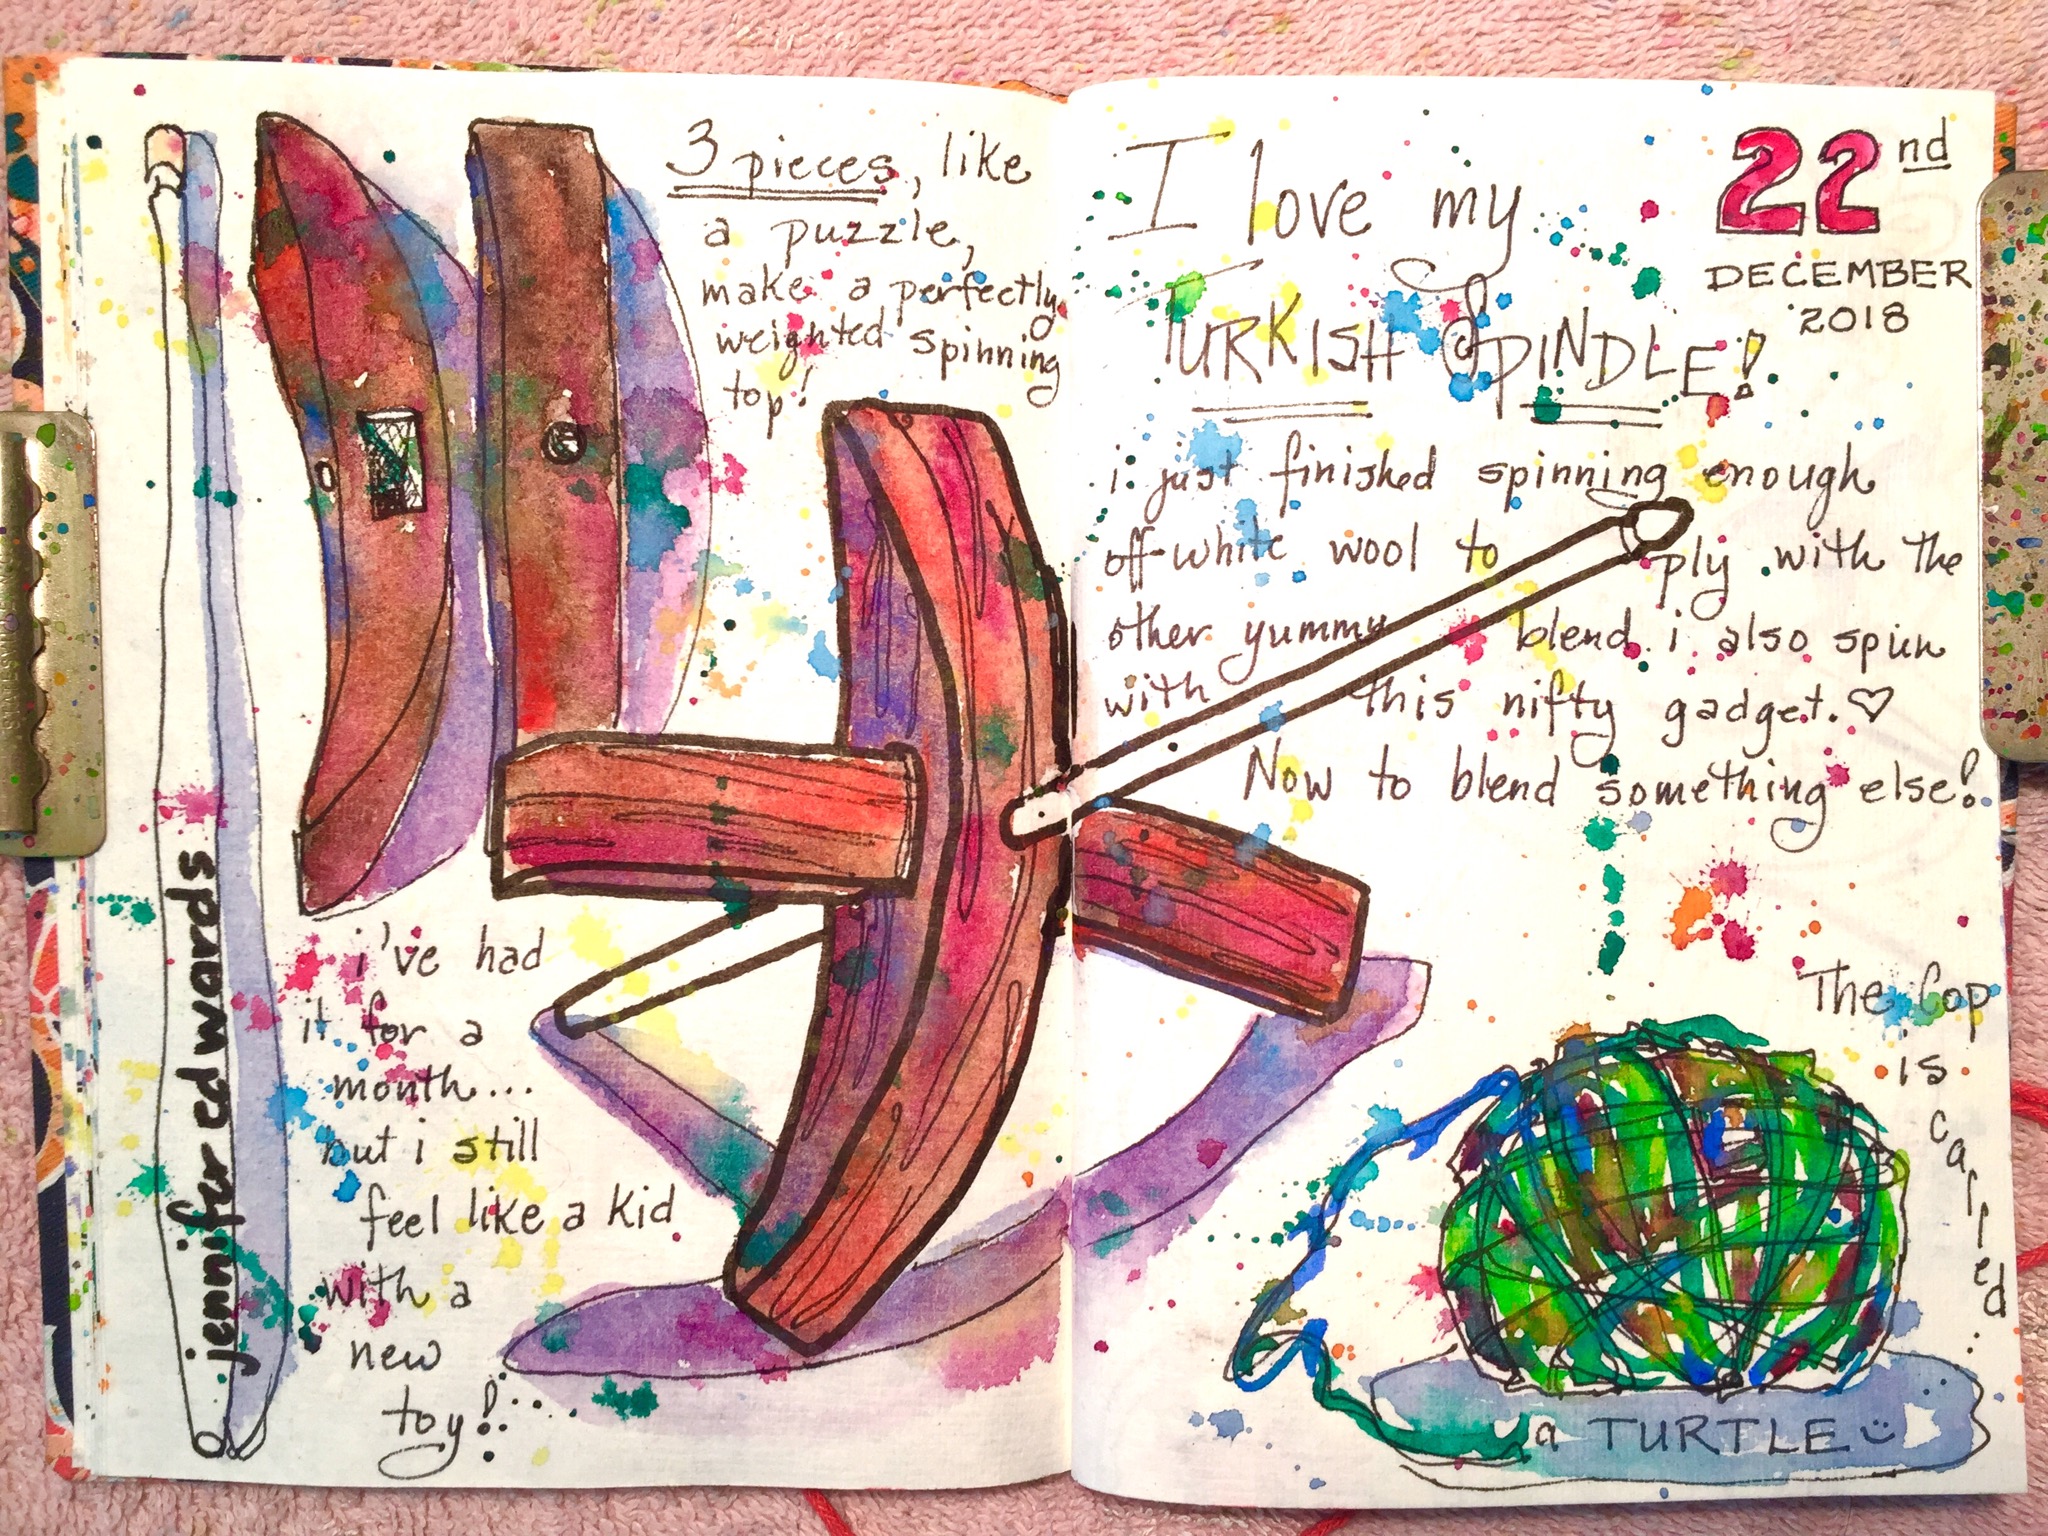 3 pieces, like
a puzzle,
make a perfectly
weighted spinning
top!
i've had
it for a
month...
but i still
feel like a kid
with a
new
toy!
jennifer edwards
22nd
DECEMBER
2018
I love my
TURKISH SPINDLE!
i just finished spinning enough
off-white wool to ply with the
other yummy blend i also spun
with this nifty gadget. ♡
Now to blend something else!
The Cop
is
called
a TURTLE :)